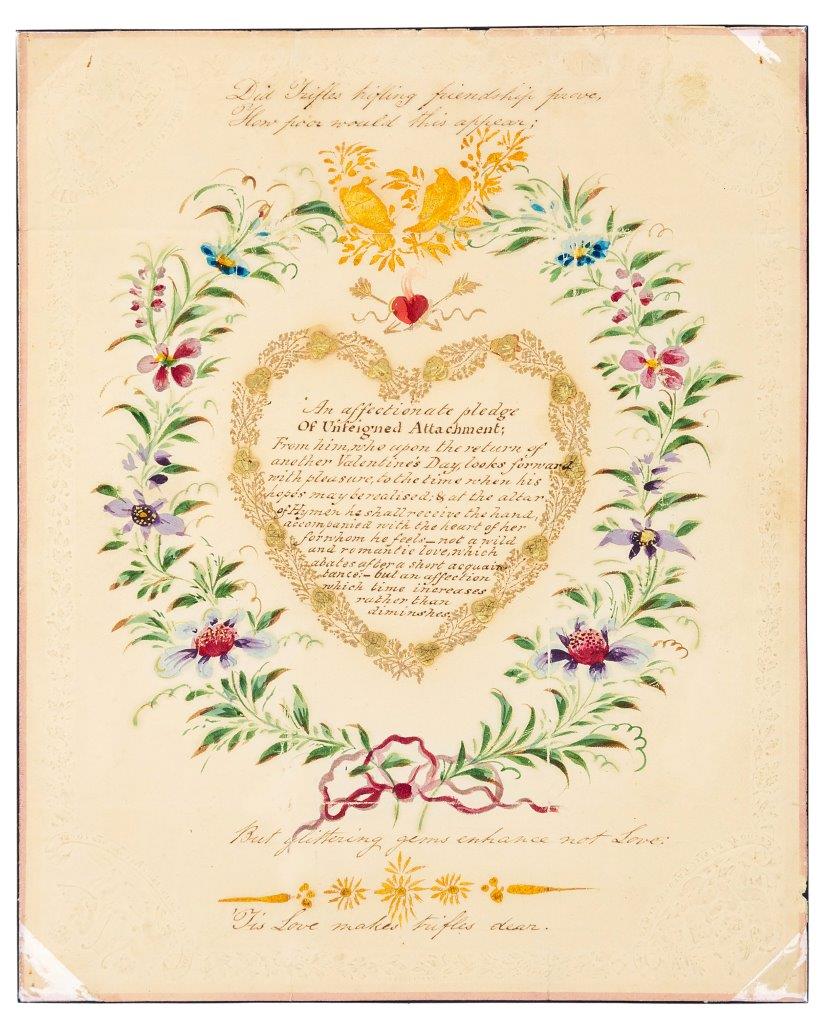 Did Trifles trifling friendship prove,
How poor would this appear;
An affectionate pledge
Of Unfeigned Attachment;
From him, who upon the return of
another Valentine's Day, looks forward
with pleasure, to the time when his
hopes may be realised; & at the altar
of Hymen he shall receive the hand,
accompanied with the heart of her
for whom he feels – not a wild
and romantic love, which
abates after a short acquain
tance: – but an affection
which time increases
rather than
diminshes.
But glittering gems enhance not Love:
'Tis Love makes trifles dear.